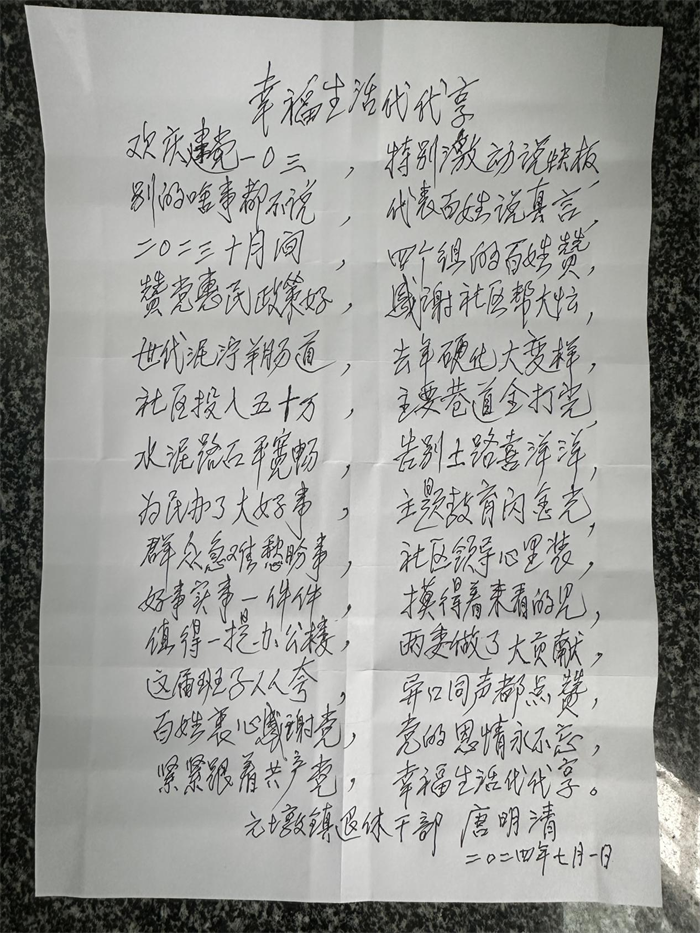 幸福生活代代享
欢庆建党一0三，特别激动说快板，
别的啥事都不说，代表百姓说真言，
二0二三十月间，四个组的百姓赞，
赞党惠民政策好，感谢社区帮大忙，
世代泥泞羊肠道，去年硬化大变样，
社区投入五十万，主要巷道全打完，
水泥路石平宽畅，告别土路喜洋洋，
为民办了大好事，主题教育闪金光，
群众急难愁盼事，社区领导心里装，
好事实事一件件，摸得着来看的见，
值得一提办公楼，两委做了大贡献，
这届班子人人夸，异口同声都点赞，
百姓衷心感谢党，党的恩情永不忘，
紧紧跟着共产党，幸福生活代代享。
元墩镇退休干部 唐明清
二0二四年七月一日